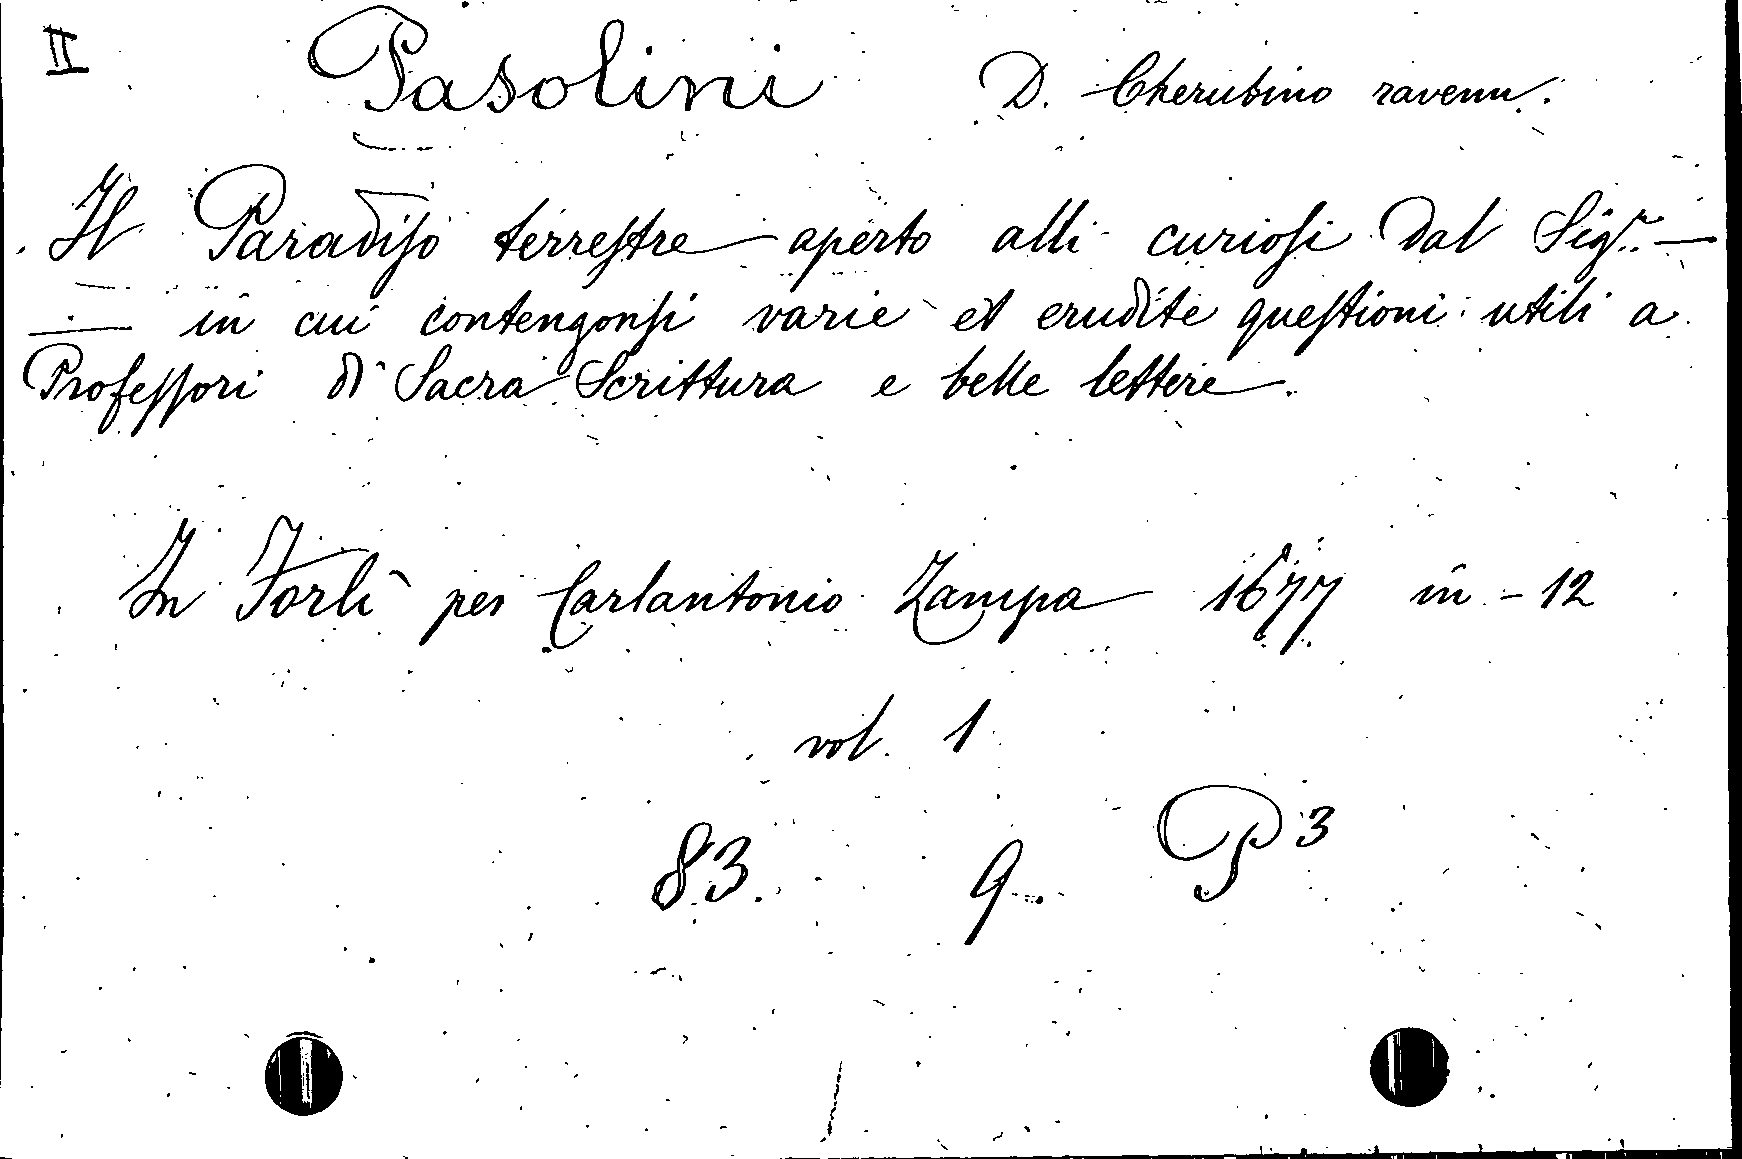 II Pasolini D. Cherubino ravenn.
Il Paradiso terrestre aperto alli curiosi dal Sigr. —
— in cui contengonsi varie et erudite questioni utili a
Professori di Sacra Scrittura e belle lettere.
In Forlì per Carlantonio Zampa 1677 in - 12
vol. 1
83. 9. P3